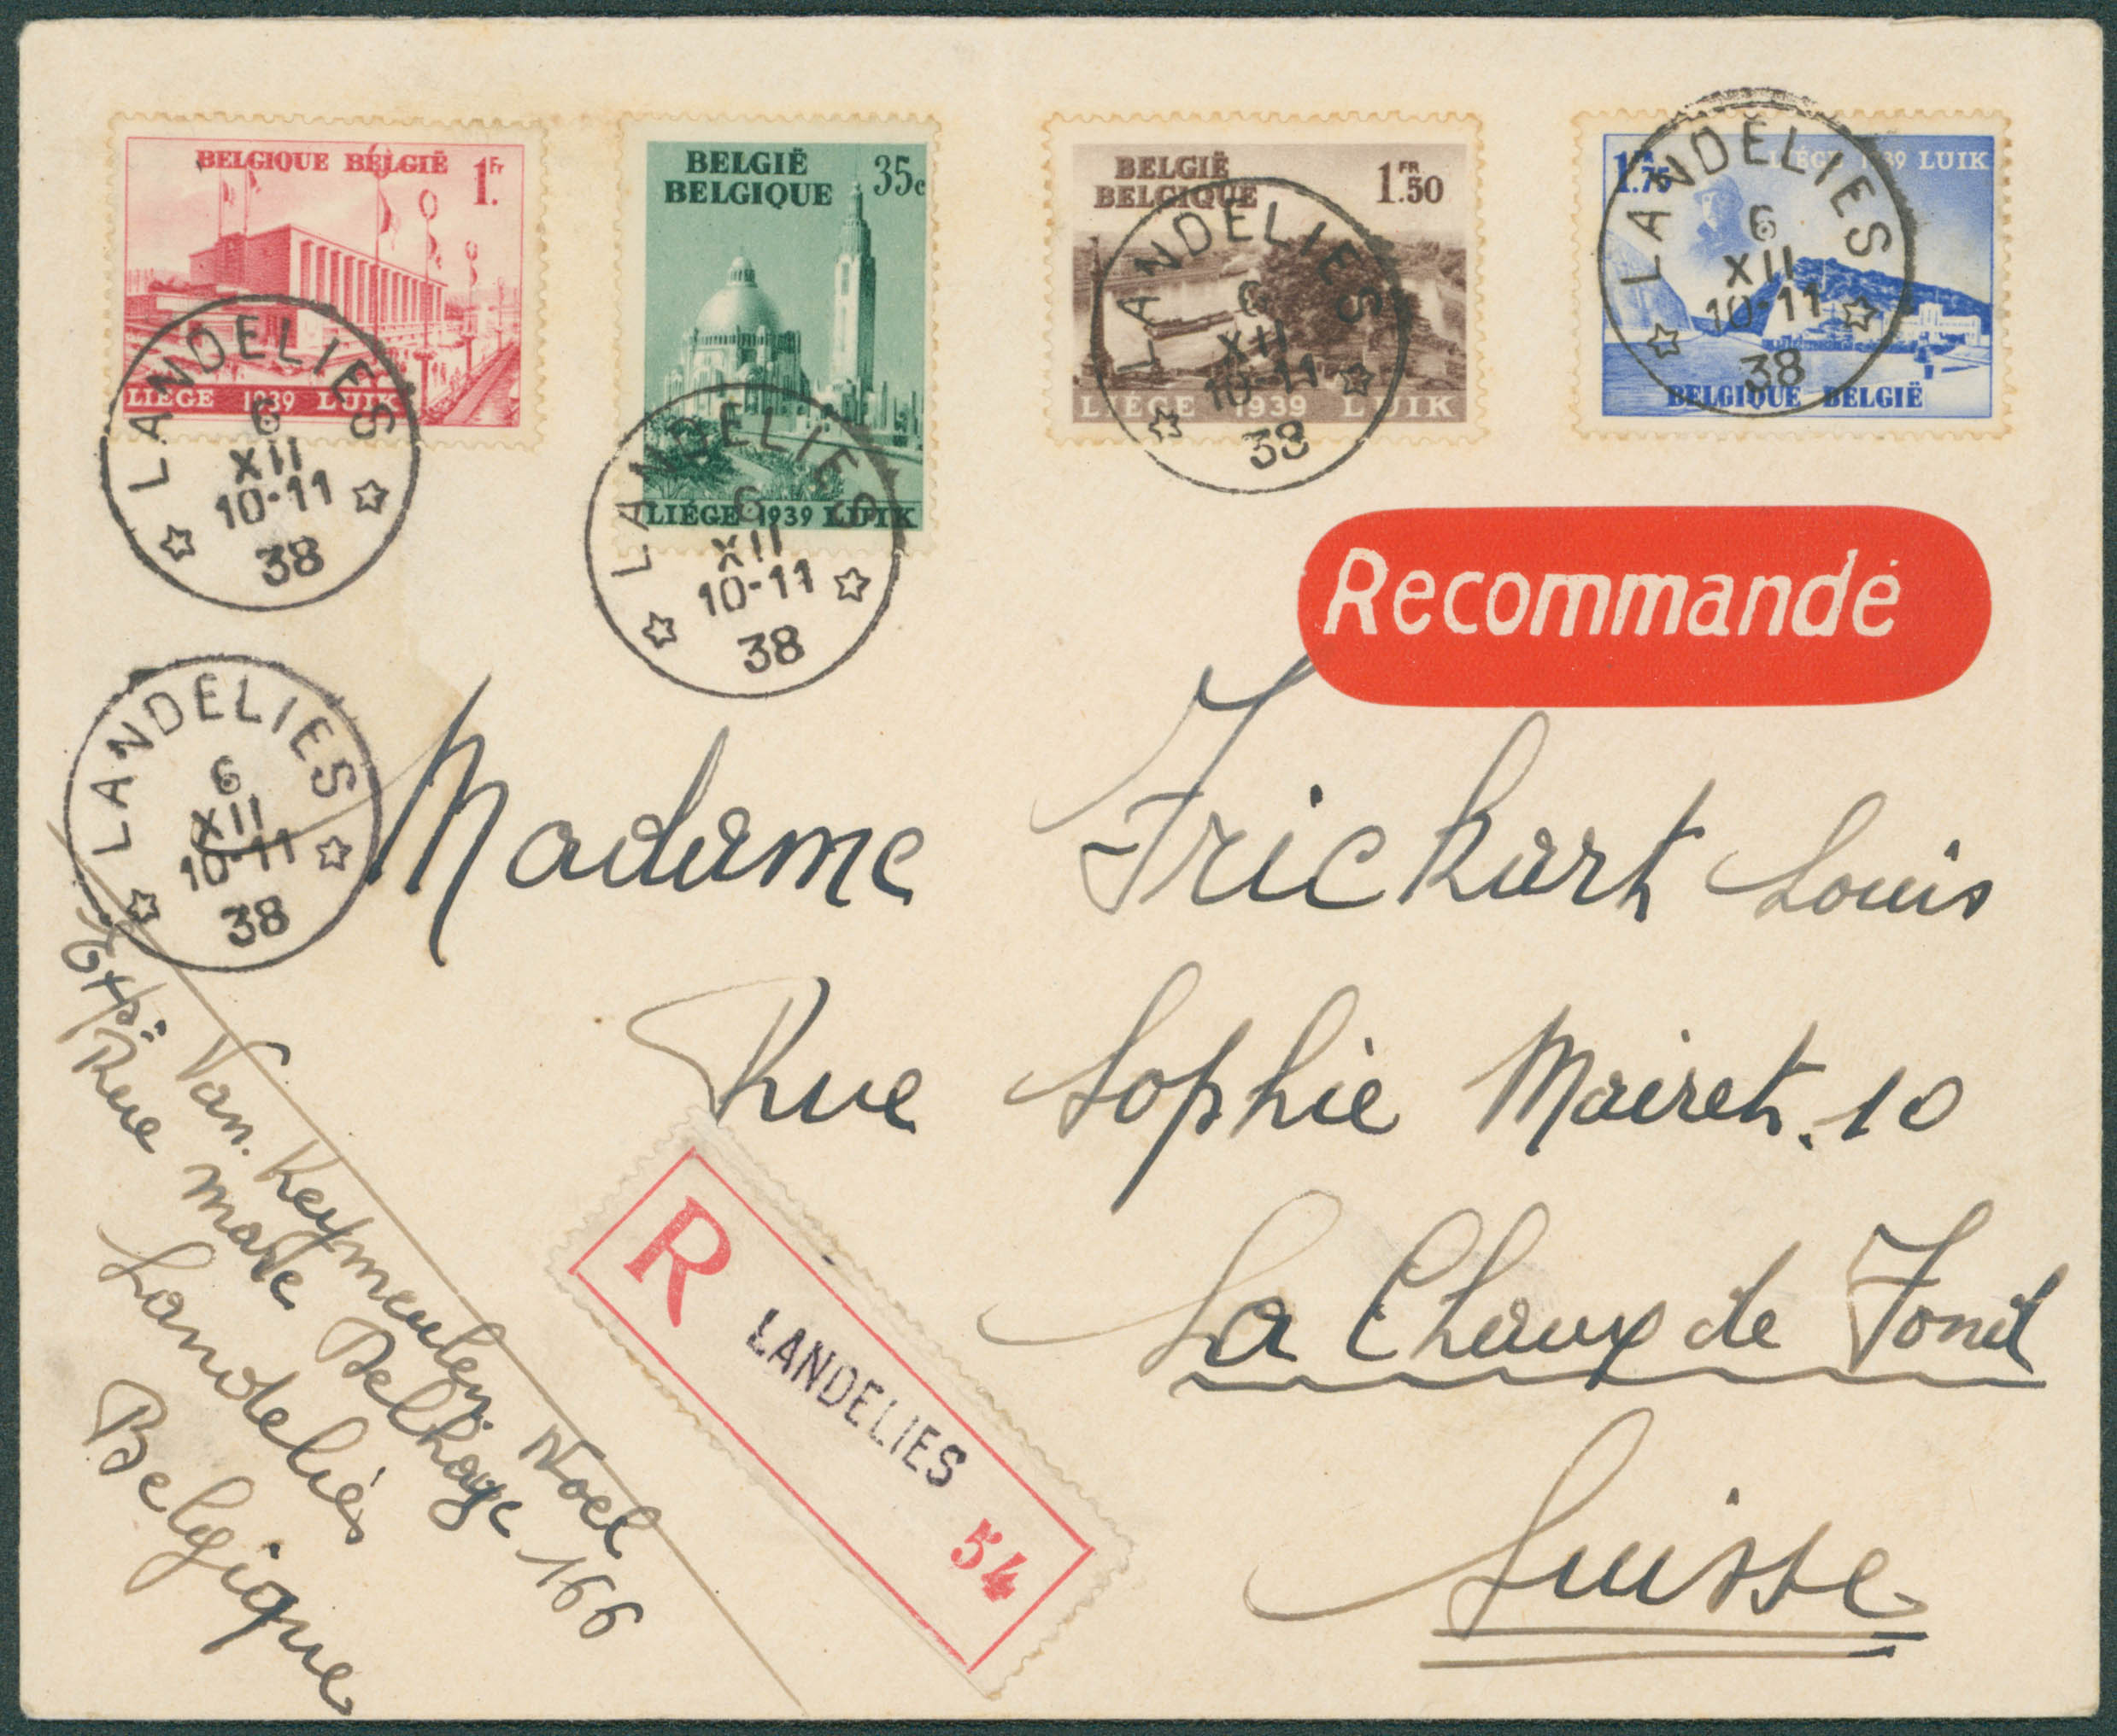 BELGIQUE BELGIË 1.Fr
LIÉGE 1939 LUIK
BELGIË 35c
BELGIQUE
LIÉGE 1939 LUIK
BELGIË 1.FR50
BELGIQUE
LIÉGE 1939 LUIK
1.75 LIÉGE 1939 LUIK
BELGIQUE BELGIË
LANDELIES
6
XII
10-11
38
LANDELIES
6
XII
10-11
38
LANDELIES
6
XII
10-11
38
LANDELIES
6
XII
10-11
38
Recommandé
LANDELIES
6
XII
10-11
38
Madame Frickart Louis
Rue Sophie Mairet. 10
La Chaux de Fond
Suisse
Exp: Van. Keymeulen. Noel
Rue Delhaye 166
Landeliès
Belgique
R LANDELIES 54